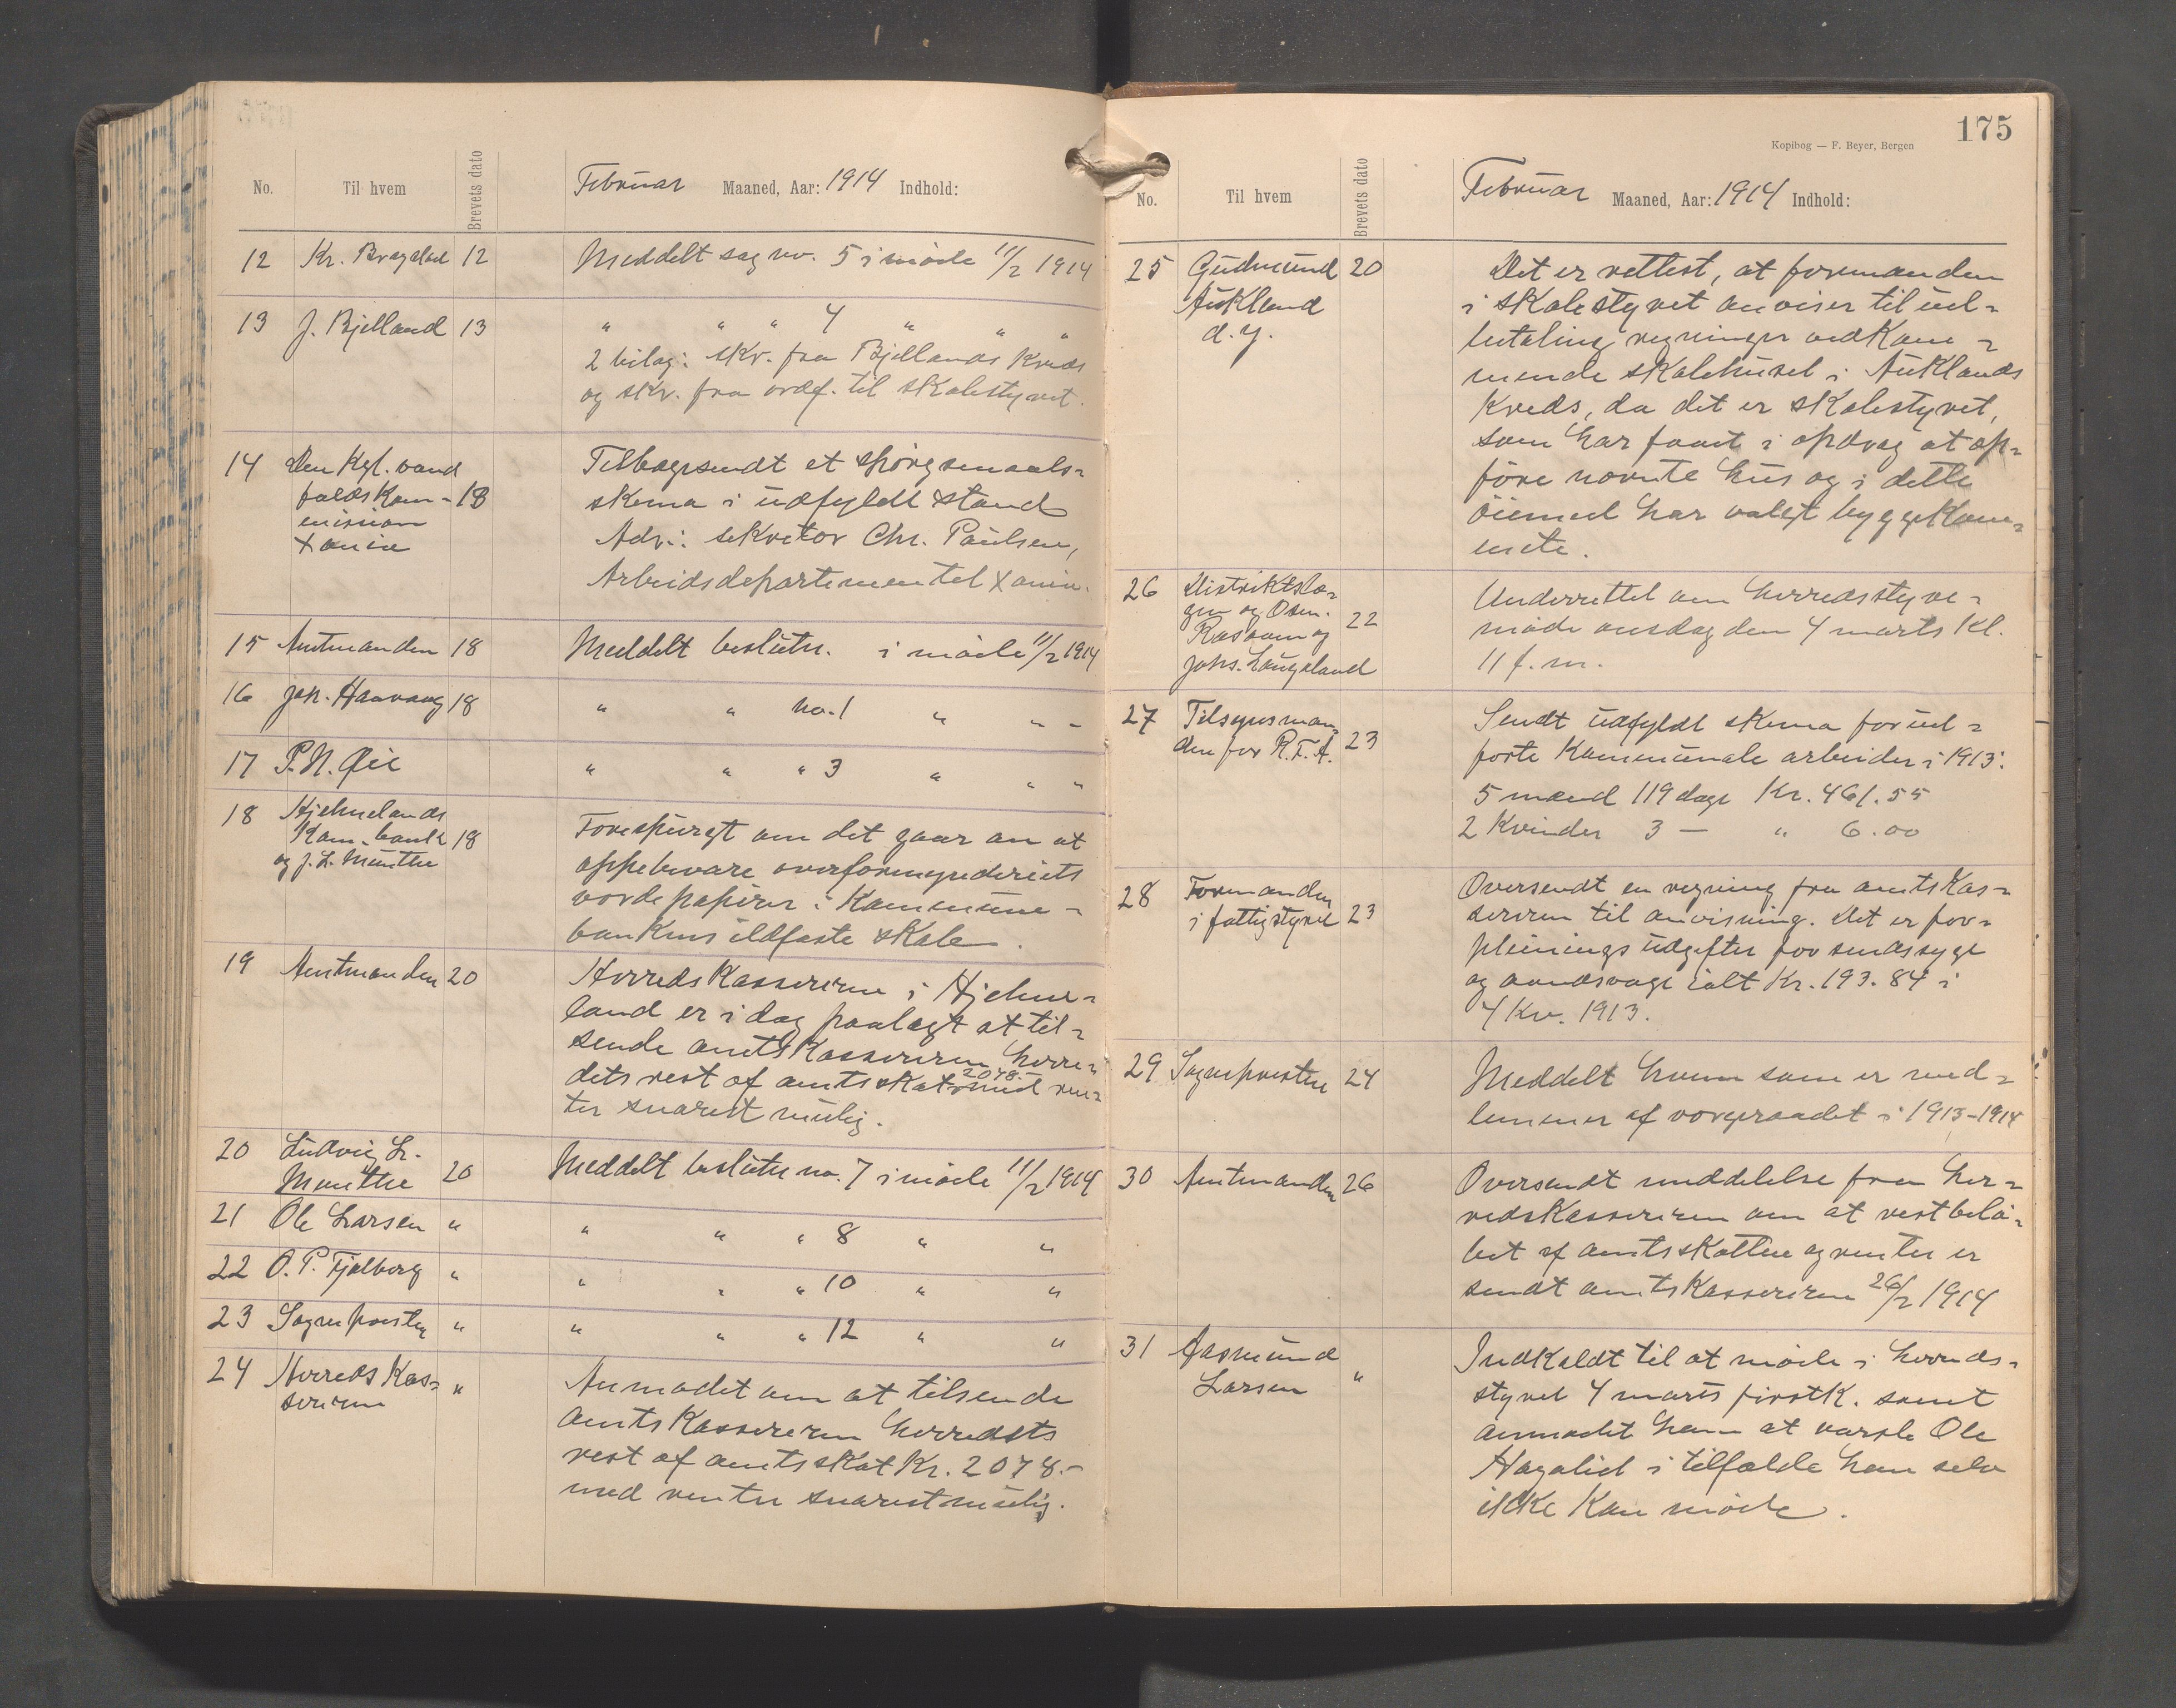 No. Til hvem Brevets dato Februar Maaned, Aar: 1914 Indhold:
12 Kr. Bragstad 12 Meddelt sag no. 5 i møde 11/2 1914
13 J. Bjelland 13 " " " 4 " " "
2 bilag: skr. fra Bjellands kreds
og skr. fra ordf. til skolestyret.
14 Den Kgl. vand
faldskom-
mission
Xania 18 Tilbagesendt et spörgsmaals-
skema i udfyldt stand
Adr.: sekretær Chr. Paulsen,
Arbeidsdepartementet Xania.
15 Amtmanden 18 Meddelt beslutn. i møde 11/2 1914
16 Joh. Haavaag 18 " " no. 1 " " "
17 P. N. Øie " " " 3 " " "
18 Hjelmelands
Kom. bank 18
og J. L. Munthe
Forespurgt om det gaar an at
oppebevare overformynderiets
værdipapirer i Kommune-
bankens ildfaste skab.
19 Amtmanden 20 Herredskassereren i Hjelme-
land er i dag paalagt at til-
sende amtskassereren herre-
dets rest af amtsskat 2078.- med ren-
ter snarest mulig.
20 Ludvig L.
Munthe 20 Meddelt beslutn no. 7 i møde 11/2 1914
21 Ole Larsen " " " " 8 " "
22 O. P. Fjelberg " " " " 10 " "
23 Sognepresten " " " " 12 " "
24 Herredskas-
sereren " Anmodet om at tilsende
amtskassereren herredets
rest af amtsskat Kr. 2078.-
med renter snarest mulig.
175
Kopibog — F. Beyer, Bergen
No. Til hvem Brevets dato Februar Maaned, Aar: 1914 Indhold:
25 Gudmund
Aukland
d. y. 20 Det er rettest, at formanden
i skolestyret anviser til ud-
betaling regninger vedkom-
mende skolehuset i Auklands
Kreds, da det er skolestyret,
som har faaet i opdrag at op-
före nævnte hus og i dette
öiemed har valgt byggekom-
mite.
26 Distriktslæ-
gen og Osm.
Rasom og 22
Johs. Laugaland
Underrettet om herredsstyre-
møde onsdag den 4 marts kl.
11 f. m.
27 Tilsynsman-
den for R. F. A. 23 Sendt udfyldt skema for ud-
förte kommunale arbeider i 1913:
5 mænd 119 dage Kr. 461.55
2 Kvinder 3 — " 6.00
28 Formanden
i fattigstyret 23 Oversendt en regning fra amtskas-
sereren til anvisning. Det er for-
pleinings udgifter for sindssyge
og aandsvage ialt Kr. 193.84 i
4 Kv. 1913.
29 Sognepresten 24 Meddelt hvem som er med-
lemmer af vergeraadet i 1913-1914
30 Amtmanden 26 Oversendt meddelelse fra her-
redskassereren om at restbelö-
bet af amtsskatten og renter er
sendt amtskassereren 26/2 1914
31 Aasmund
Larsen " Indkaldt til at möde i herreds-
styret 4 marts förstk. samt
anmodet ham at varsle Ole
Hagalid i tilfælde han selv
ikke kan möde.